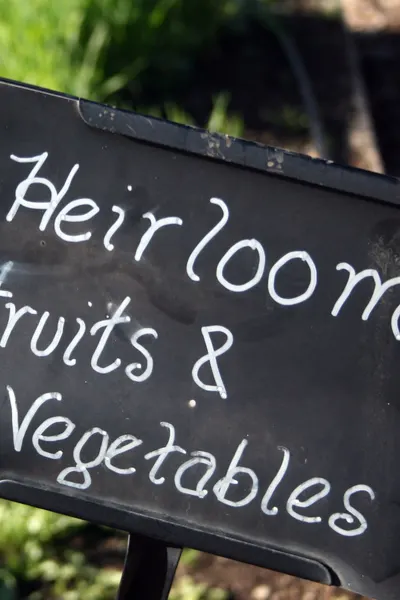 Heirloom
Fruits &
Vegetables